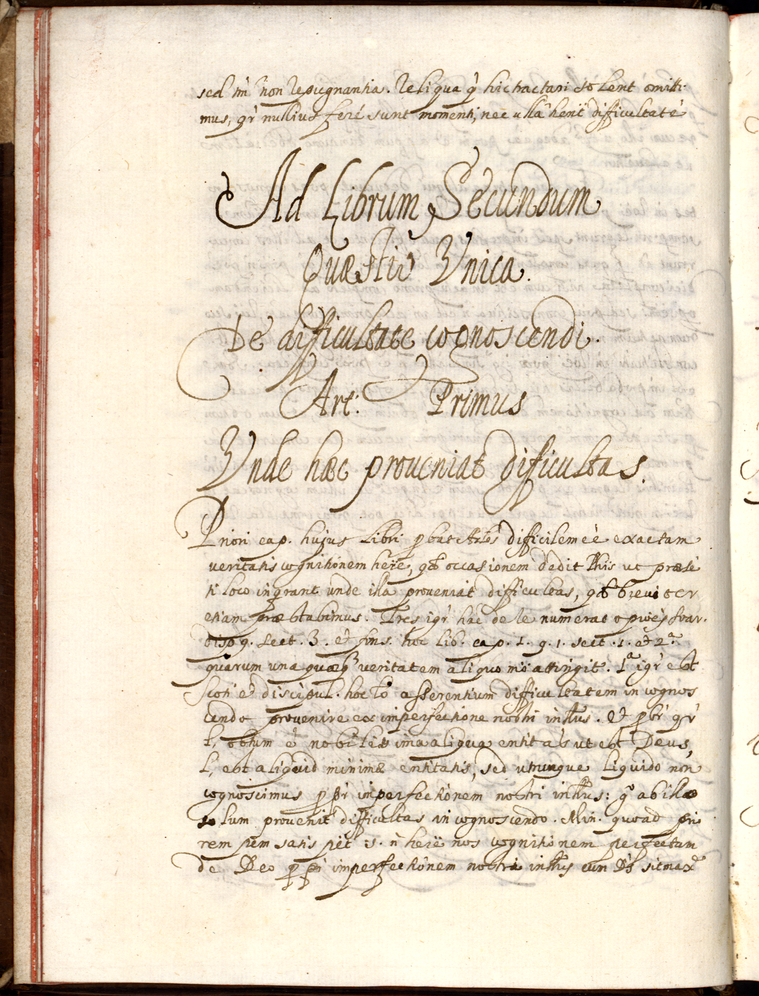 sed in non repugnantia. Reliqua q̃ hic tractari solent omitti-
mus, qr nullius ferè sunt momenti, nec ullã hent difficultatẽ
Ad Librum Secundum
Quæstio Unica.
De difficultate cognoscendi.
Art: Primus
Unde hæc proueniat difficultas.
Priori cap. hujus Libri probat Arles difficilem eẽ exactam
veritatis cognitionem herẽ, qd occasionem dedit Phis ut præsẽ
ti loco inqrant unde illa proveniat difficultas, qd breviter
etiam præstabimus. Tres igr hac de re numerat opiões Suar.
disp. 9. sect. 3. et fons. hoc lib. cap. 1. q. 1. sect. 1. et 2ª
quarum una quæq veritatem aliquo mõ attingit. 1ª igr est
Scoti et discipul. hoc lõ asserentium difficultatem in cognos
cendo provenire ex imperfectione nostri inttus. Et pbr qr
l, obtum ẽ nobilissima aliqua entitas ut est Deus,
l, est aliquid minimæ entitatis, sed utrumque liquido non
cognoscimus p ppr imperfectionem nostri inttus: g ab illa
solum provenit difficultas in cognoscendo. Min. quoad prio
rem ptem satis pẽt is. ñ herẽ nos cognitionem perfectam
de Deo p ppr imperfectionem nostri inttus cum Ds sit maxẽ